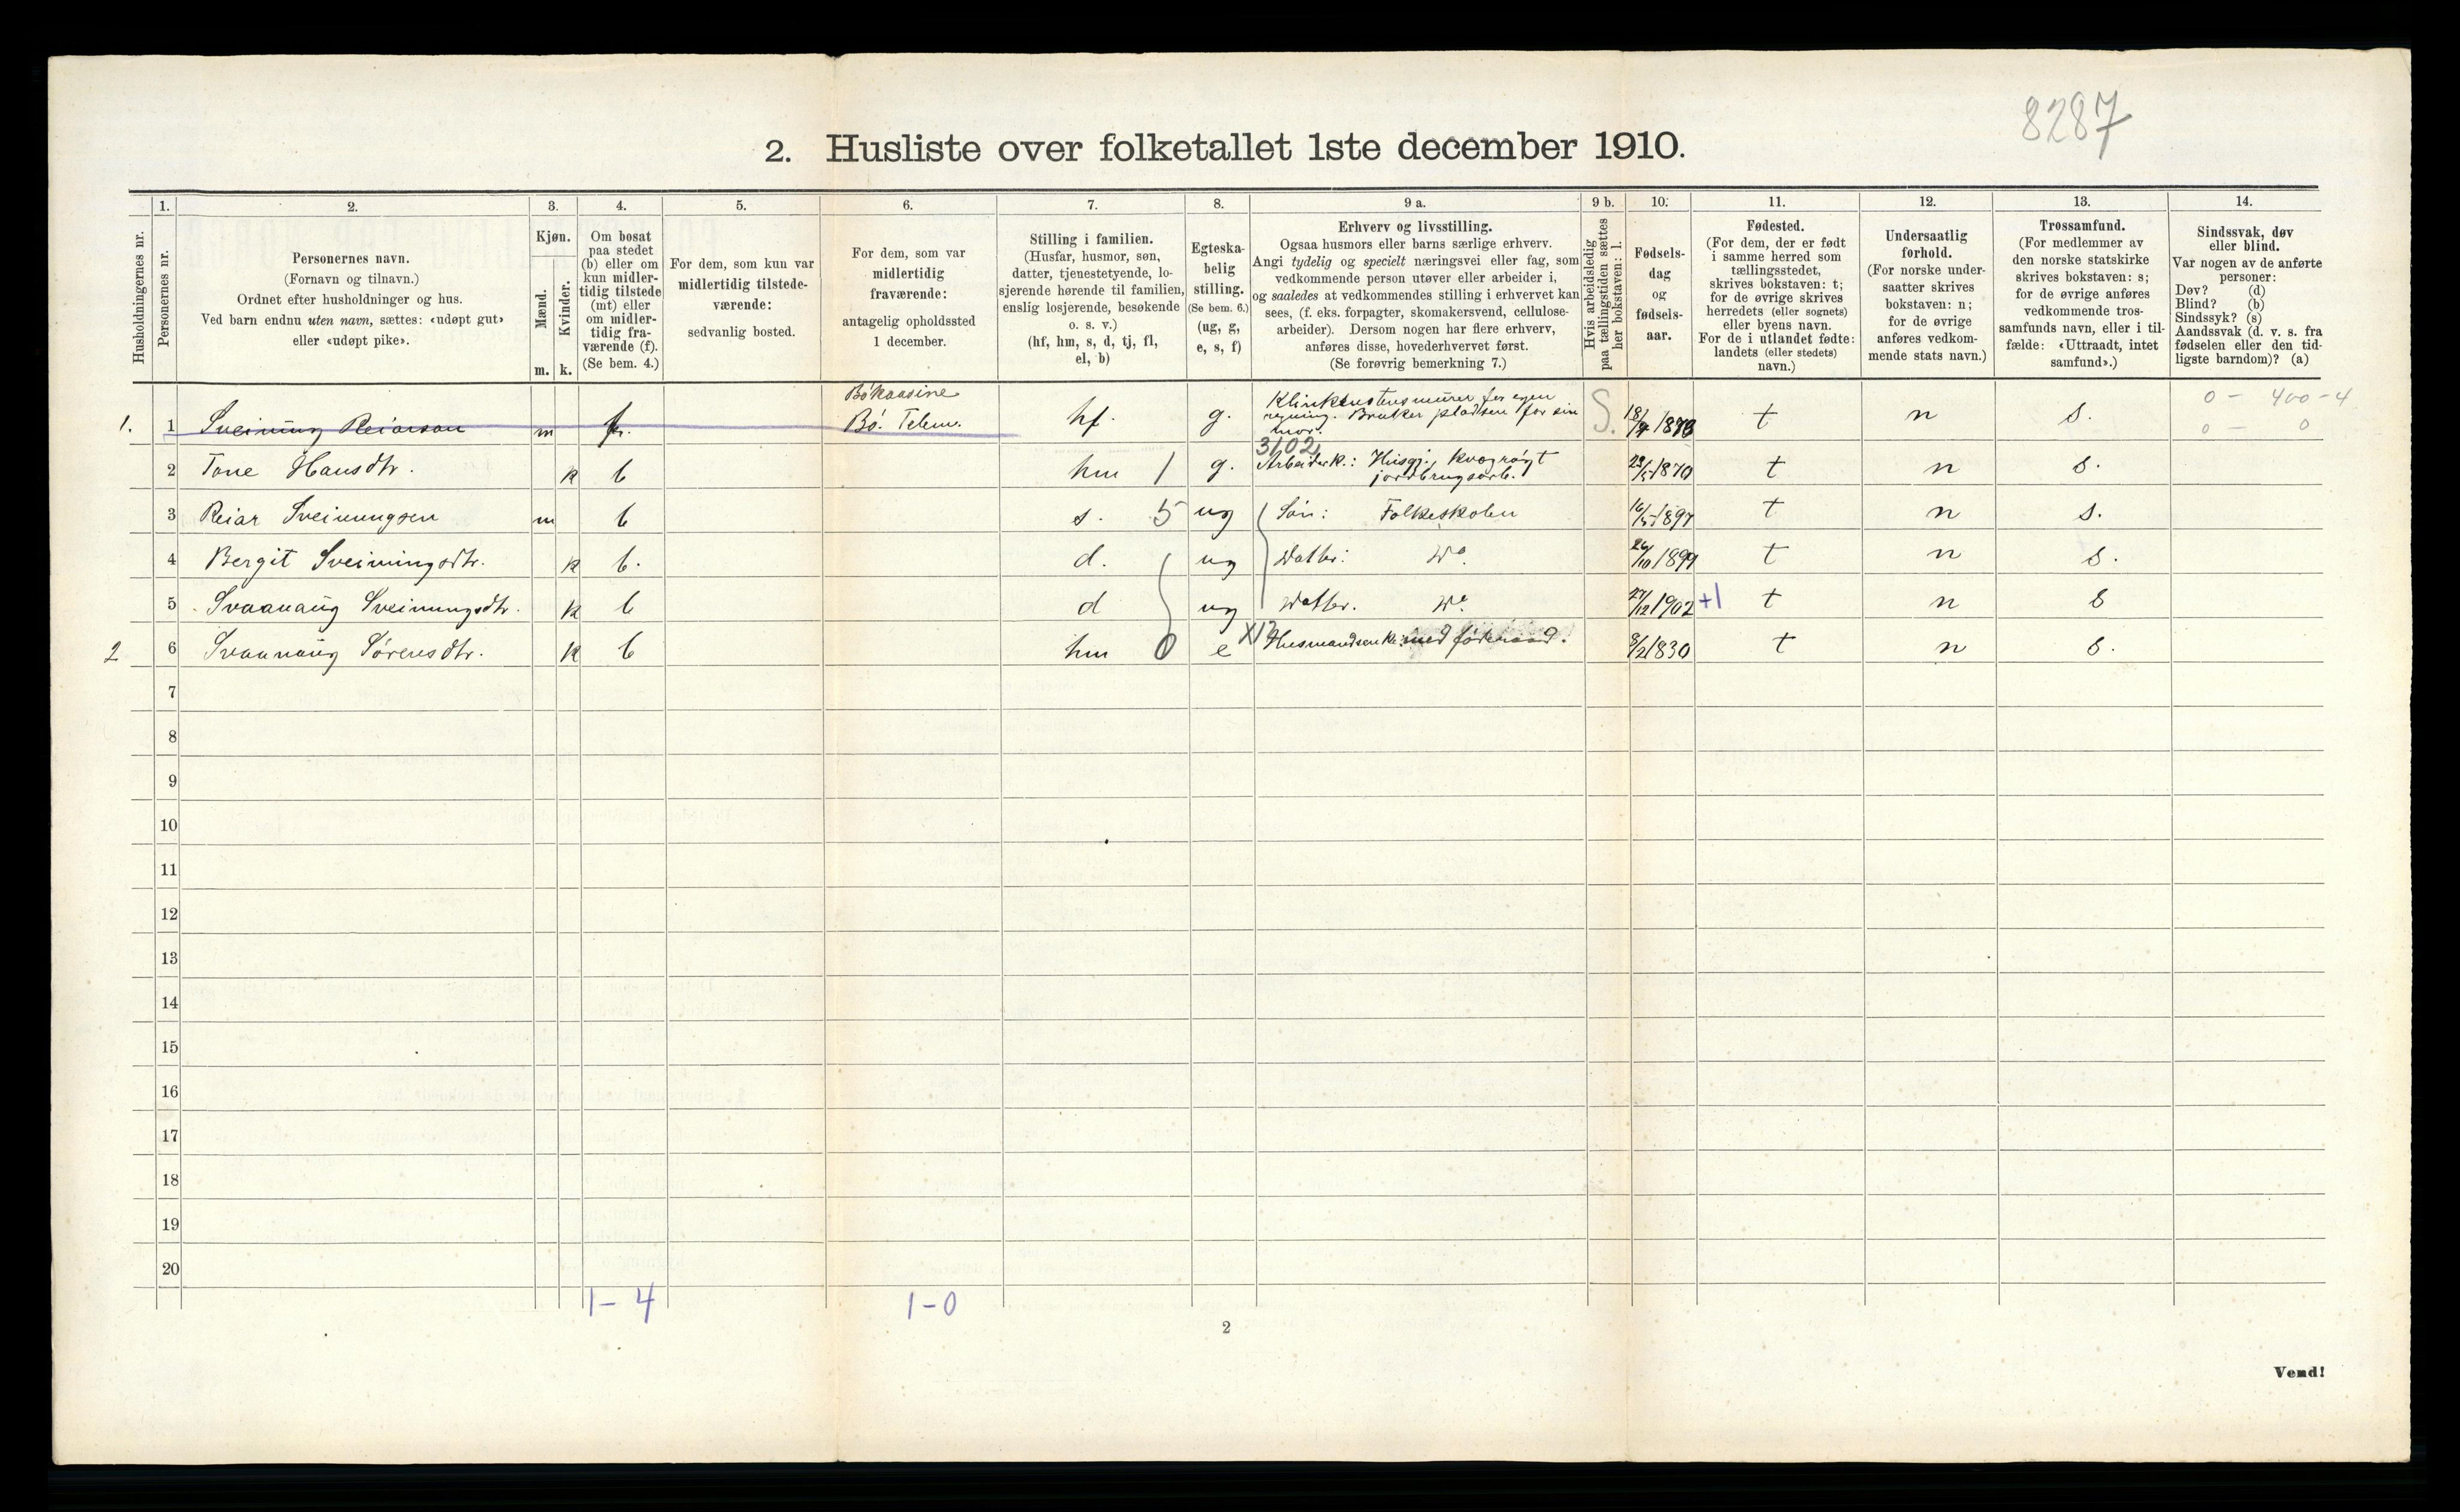 8287
2. Husliste over folketallet 1ste december 1910.
Husholdningernes nr.
1.
Personernes nr.
2.
Personernes navn.
(Fornavn og tilnavn.)
Ordnet efter husholdninger og hus.
Ved barn endnu uten navn, sættes: «udøpt gut»
eller «udøpt pike».
3.
Kjøn.
Mænd.
Kvinder.
m. k.
4.
Om bosat
paa stedet
(b) eller om
kun midler-
tidig tilstede
(mt) eller
om midler-
tidig fra-
værende (f).
(Se bem. 4.)
5.
For dem, som kun var
midlertidig tilstede-
værende:
sedvanlig bosted.
6.
For dem, som var
midlertidig
fraværende:
antagelig opholdssted
1 december.
7.
Stilling i familien.
(Husfar, husmor, søn,
datter, tjenestetyende, lo-
sjerende hørende til familien,
enslig losjerende, besøkende
o. s. v.)
(hf, hm, s, d, tj, fl,
el, b)
8.
Egteska-
belig
stilling.
(Se bem. 6.)
(ug, g,
e, s, f)
9 a.
Erhverv og livsstilling.
Ogsaa husmors eller barns særlige erhverv.
Angi tydelig og specielt næringsvei eller fag, som
vedkommende person utøver eller arbeider i,
og saaledes at vedkommendes stilling i erhvervet kan
sees, (f. eks. forpagter, skomakersvend, cellulose-
arbeider). Dersom nogen har flere erhverv,
anføres disse, hovederhvervet først.
(Se forøvrig bemerkning 7.)
9 b.
Hvis arbeidsledig
paa tællingstiden sættes
her bokstaven: l.
10.
Fødsels-
dag
og
fødsels-
aar.
11.
Fødested.
(For dem, der er født
i samme herred som
tællingsstedet,
skrives bokstaven: t;
for de øvrige skrives
herredets (eller sognets)
eller byens navn.
For de i utlandet fødte:
landets (eller stedets)
navn.)
12.
Undersaatlig
forhold.
(For norske under-
saatter skrives
bokstaven: n;
for de øvrige
anføres vedkom-
mende stats navn.)
13.
Trossamfund.
(For medlemmer av
den norske statskirke
skrives bokstaven: s;
for de øvrige anføres
vedkommende tros-
samfunds navn, eller i til-
fælde: «Uttraadt, intet
samfund».)
14.
Sindssvak, døv
eller blind.
Var nogen av de anførte
personer:
Døv? (d)
Blind? (b)
Sindssyk? (s)
Aandssvak (d. v. s. fra
fødselen eller den tid-
ligste barndom)? (a)
1. 1 Sveinung Reiarson m f. Bókaasine Bó. Telem. hf. g. Klinkenstensmurer for egen regning. Bruker pladsen for sin mor. S. t n s. 0 - 400 - 4
0 - 0
3102
2 Tone Hansdtr. k b hm 1 g. Arbeidsk.: Husgj., kvægrøgt jordbrugsarb. 1870 t n s.
3 Reiar Sveinungsen m b s. 5 ug Søn: Folkeskolen 16/5 1897 t n s.
4 Bergit Sveinungsdtr. k b. d. ug Datter: Do. 26/10 1899 t n s.
5 Svaanaug Sveinungsdtr. k b d ug Datter. Do. 27/12 1902 +1 t n s
2 6 Svaanaug Sørensdtr. k b hm 0 e Husmandsenke: med føderaad. 8/2 1830 t n s.
7
8
9
10
11
12
13
14
15
16
17
18
19
20
1 - 4 1 - 0
2
Vend!